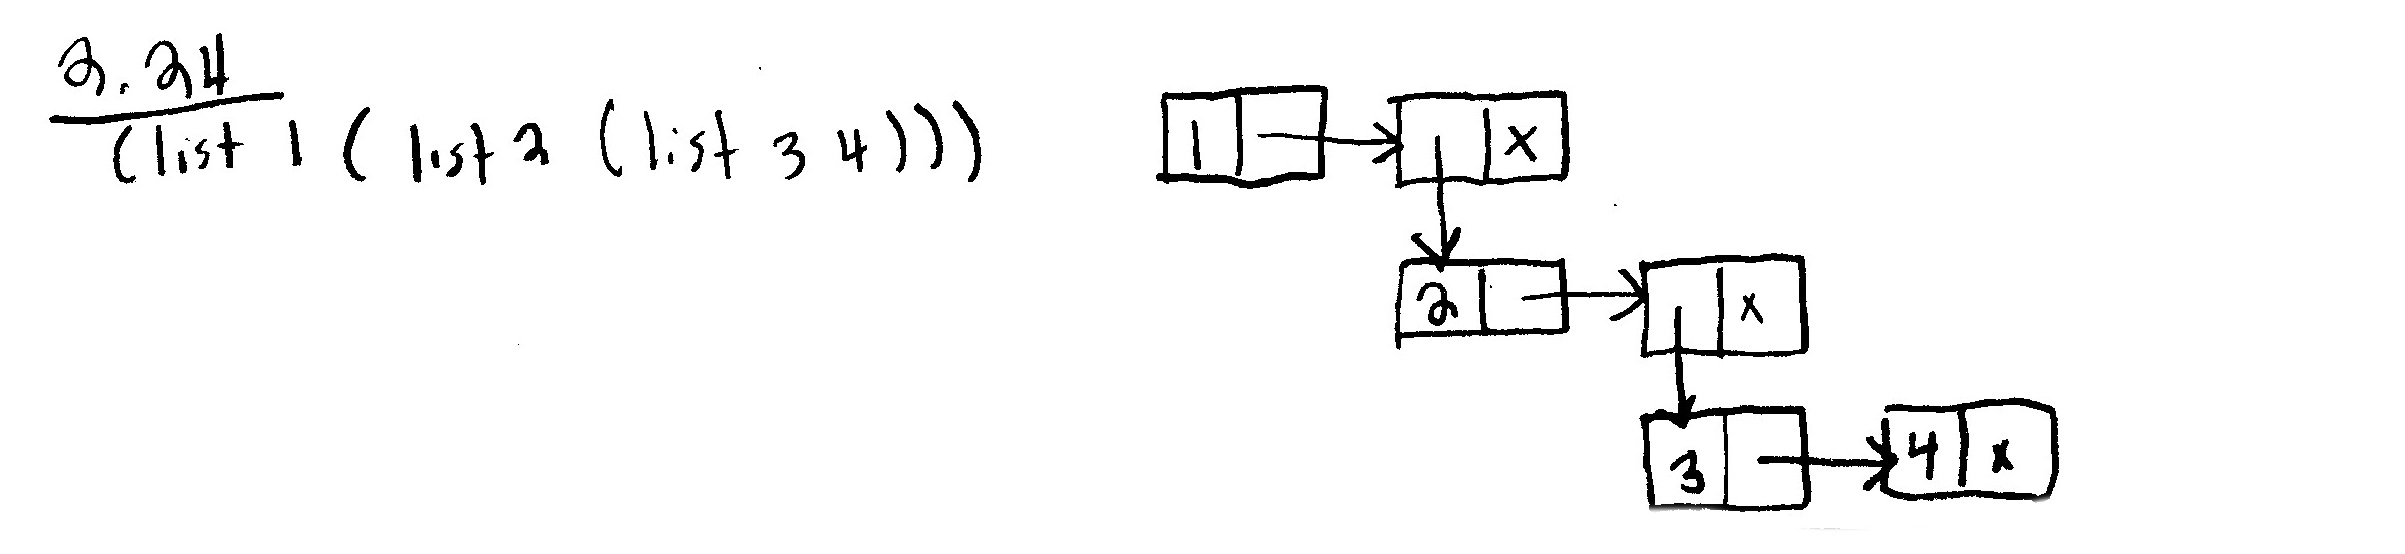 2.24
(list 1 (list 2 (list 3 4)))
1 x
2 x
3 4 x